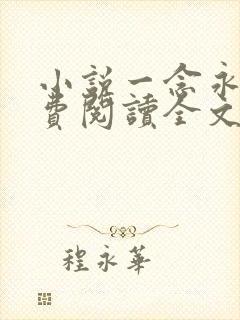 小説一念永
費閱讀全文
程永華